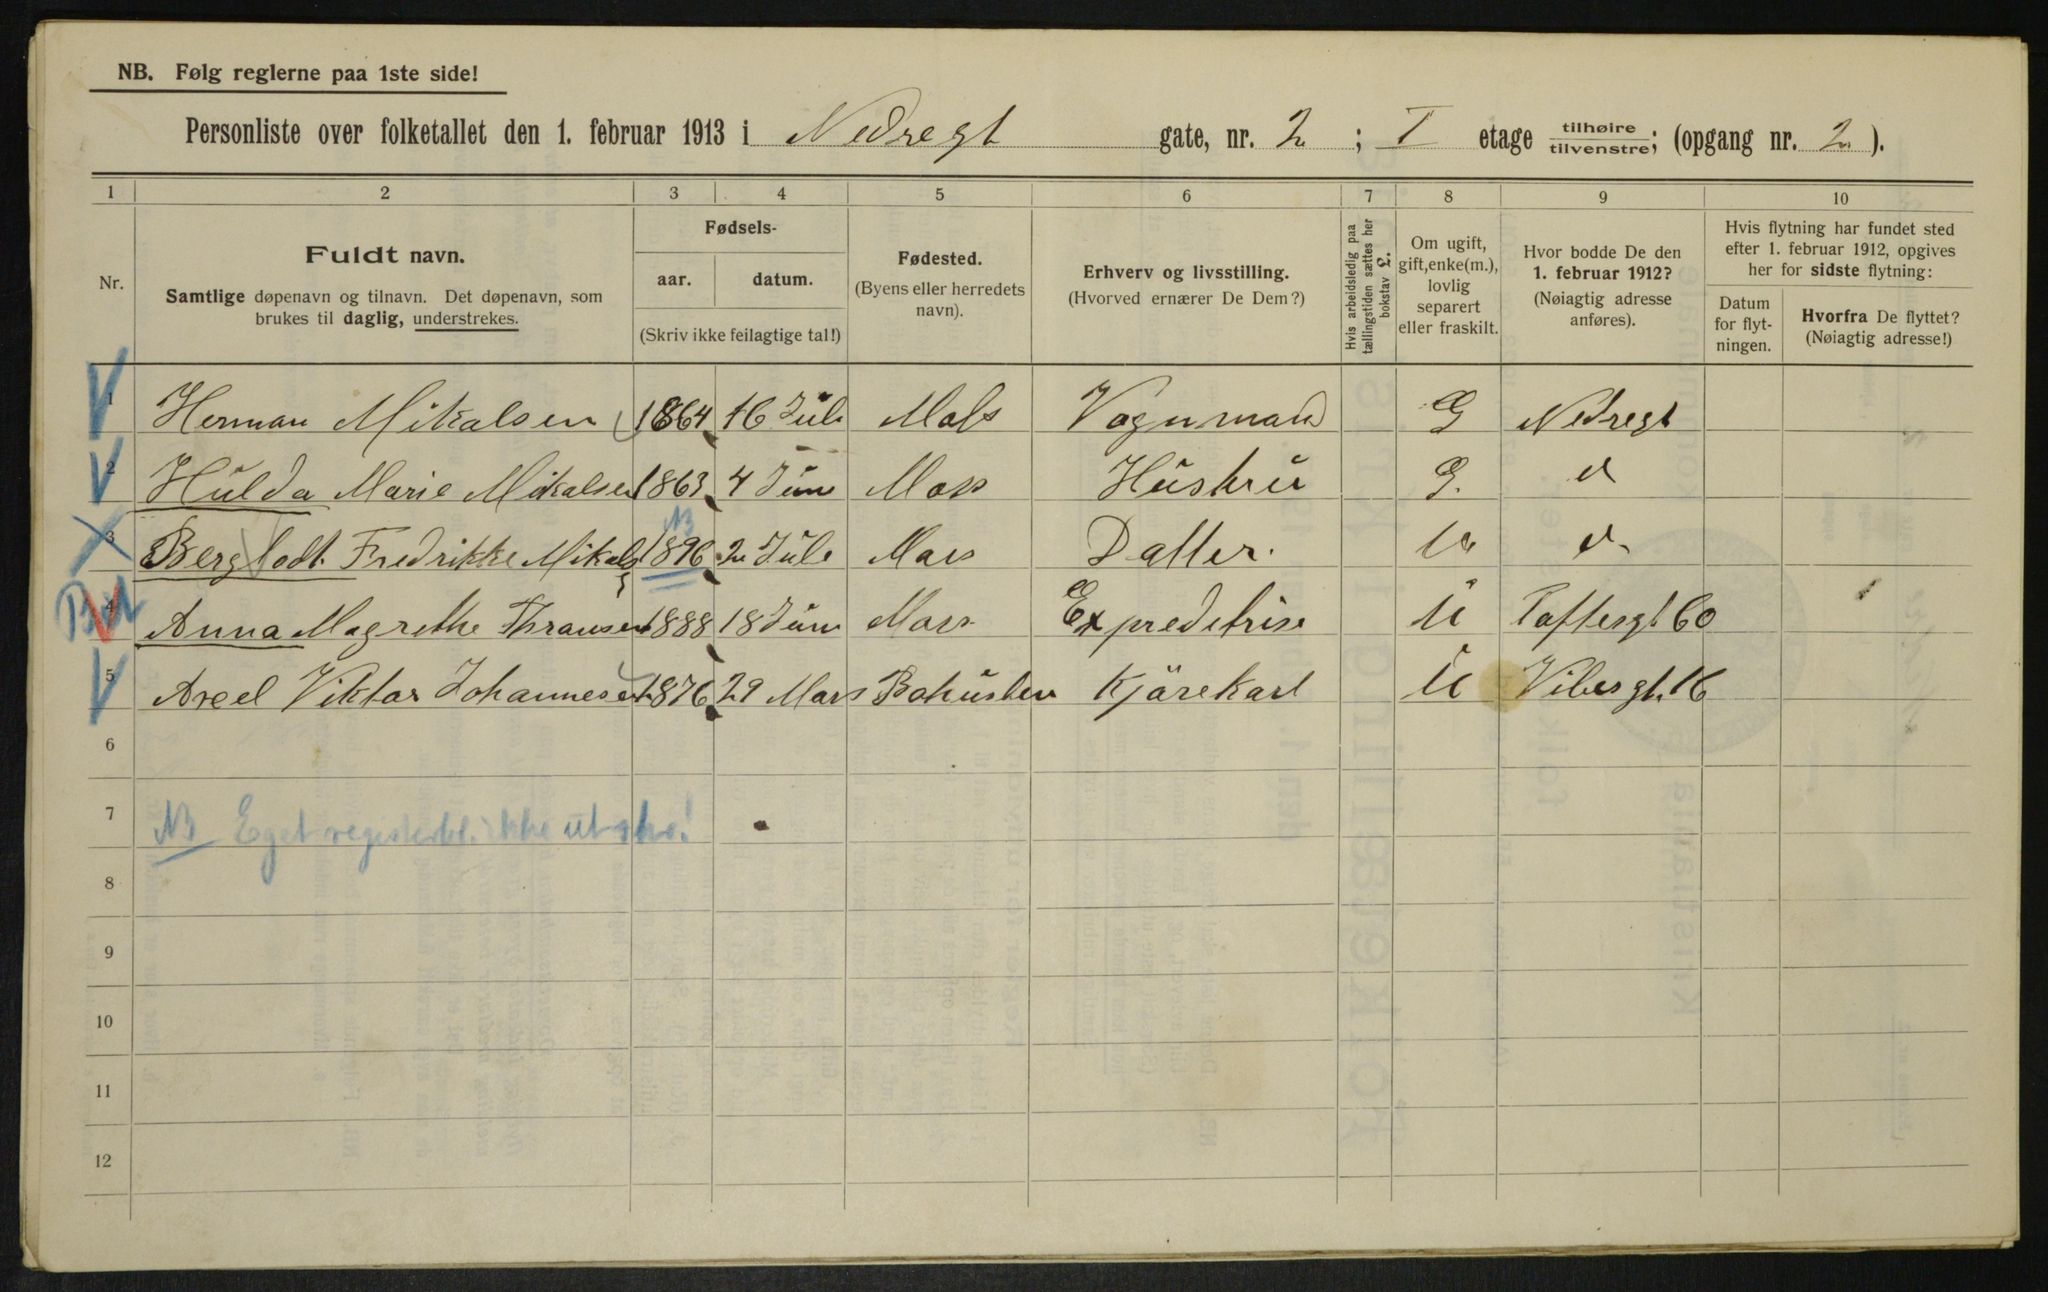 NB. Følg reglerne paa 1ste side!
Personliste over folketallet den 1. februar 1913 i Nedregt gate, nr. 2 ; I etage tilhøire/tilvenstre; (opgang nr. 2 ).
1 2 3 4 5 6 7 8 9 10
Nr.
Fuldt navn.
Samtlige døpenavn og tilnavn. Det døpenavn, som
brukes til daglig, understrekes.
Fødsels-
aar. datum.
(Skriv ikke feilagtige tal!)
Fødested.
(Byens eller herredets
navn).
Erhverv og livsstilling.
(Hvorved ernærer De Dem?)
Hvis arbeidsledig paa
tællingstiden sættes her
bokstav L.
Om ugift,
gift, enke(m.),
lovlig
separert
eller fraskilt.
Hvor bodde De den
1. februar 1912?
(Nøiagtig adresse
anføres).
Hvis flytning har fundet sted
efter 1. februar 1912, opgives
her for sidste flytning:
Datum
for flyt-
ningen.
Hvorfra De flyttet?
(Nøiagtig adresse!)
1 Herman Mikalsen 1864 16 Juli Moss Vognmand G Nedregt
2 Hulda Marie Mikalsen 1863 4 Juni Moss Hustru G.
NB
3 Bergljodt Fredrikke Mikals 1896 2 Juli Moss Datter. U
4 Anna Magrethe Thransen 1888 18 Juni Moss Expreditrise U Toftesgt 60
5 Axel Viktor Johannesen 1876 29 Mars Bohuslen Kjörekarl U Vibesgt. 16
6
7
NB Eget registerbl. ikke utskr.!
8
9
10
11
12